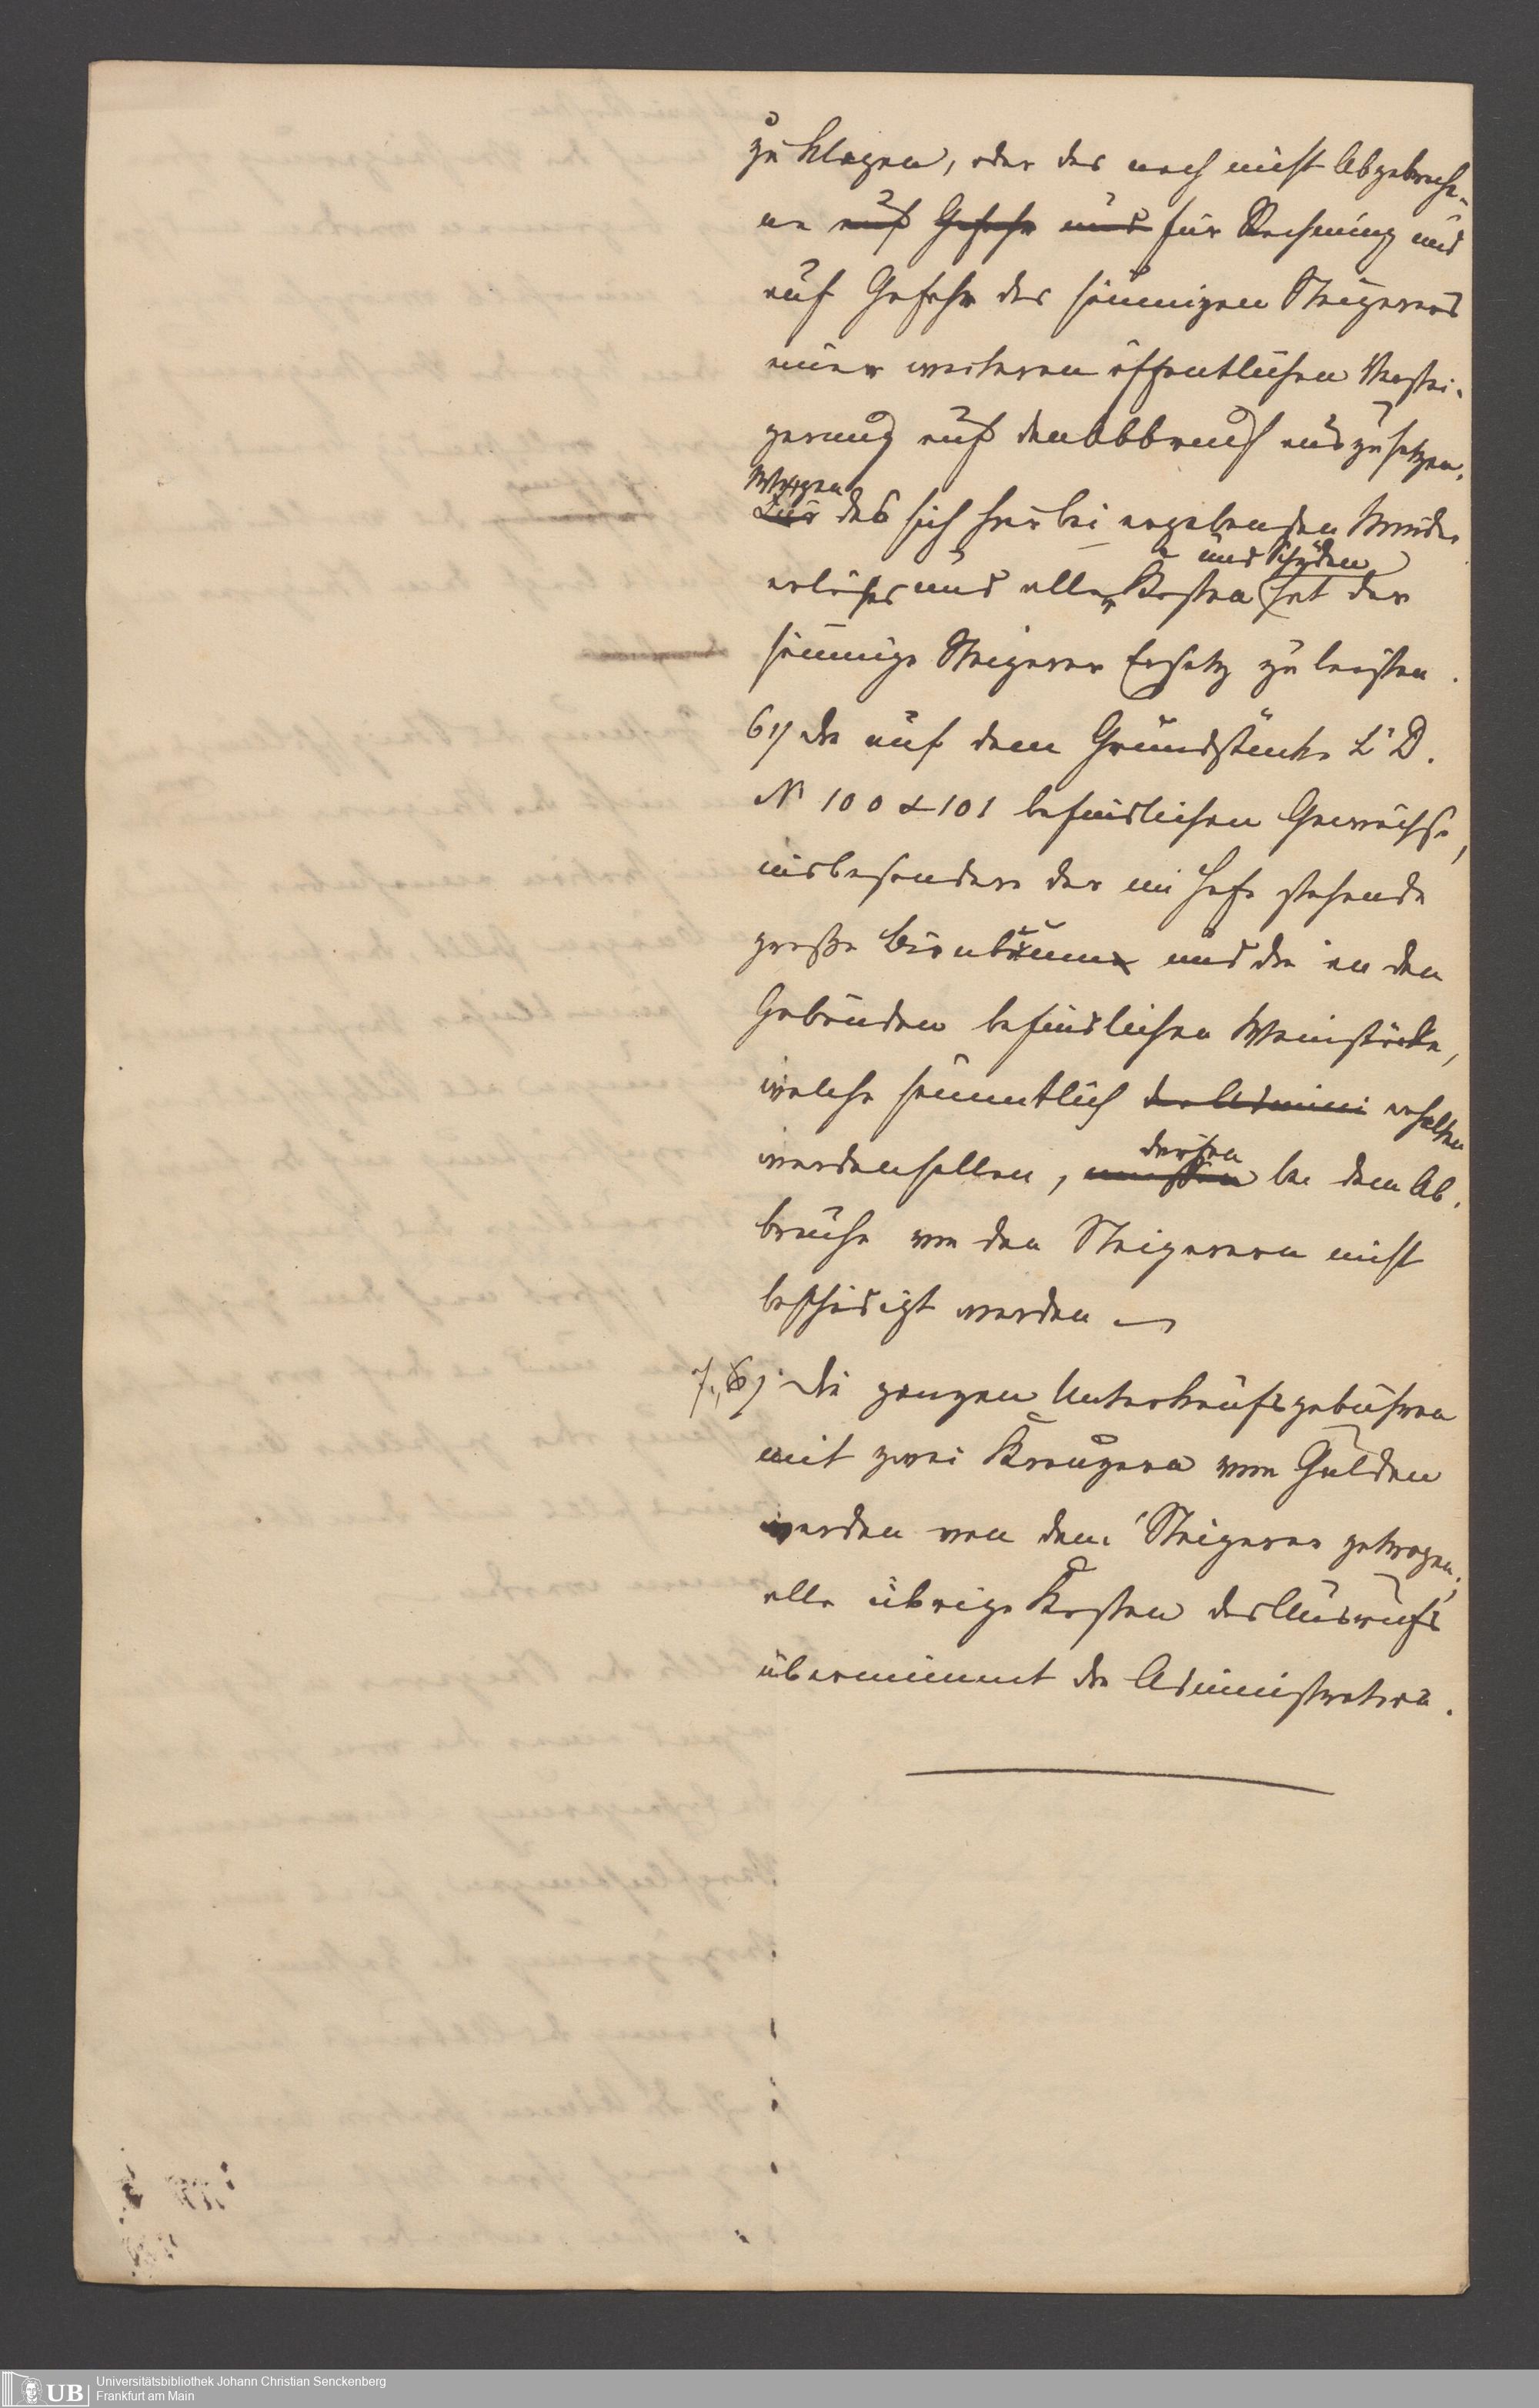 zu klagen, oder das noch nicht Abgebroche-
ne auf Gefahr und für Rechnung und
auf Gefahr des säumigen Steigerers
einer weiteren öffentlichen Verstei-
gerung auf den Abbruch auszusetzen.
Wegen
Für des sich hierbei ergebenden Minder
und Schäden
erlöses und aller Kosten hat der
säumige Steigerer Ersatz zu leisten.
6,) die auf dem Grundstücke Lr D.
No 100 & 101 befindlichen Gewächse,
insbesondere der im Hofe stehende
große Birnbaum und die an den
Gebäuden befindlichen Weinstöcke,
welche sämmtlich der Admini erhalten
dürfen
werden sollen, müssen bei dem Ab-
bruche von den Steigerern nicht
beschädigt werden
7,) Die ganzen Unterkaufsgebühren
mit zwei Kreuzern vom Gulden
werden von dem Steigerer getragen;
alle übrige Kosten des Ausrufs
übernimmt die Administration.
Universitätsbibliothek Johann Christian Senckenberg
UB
Frankfurt am Main